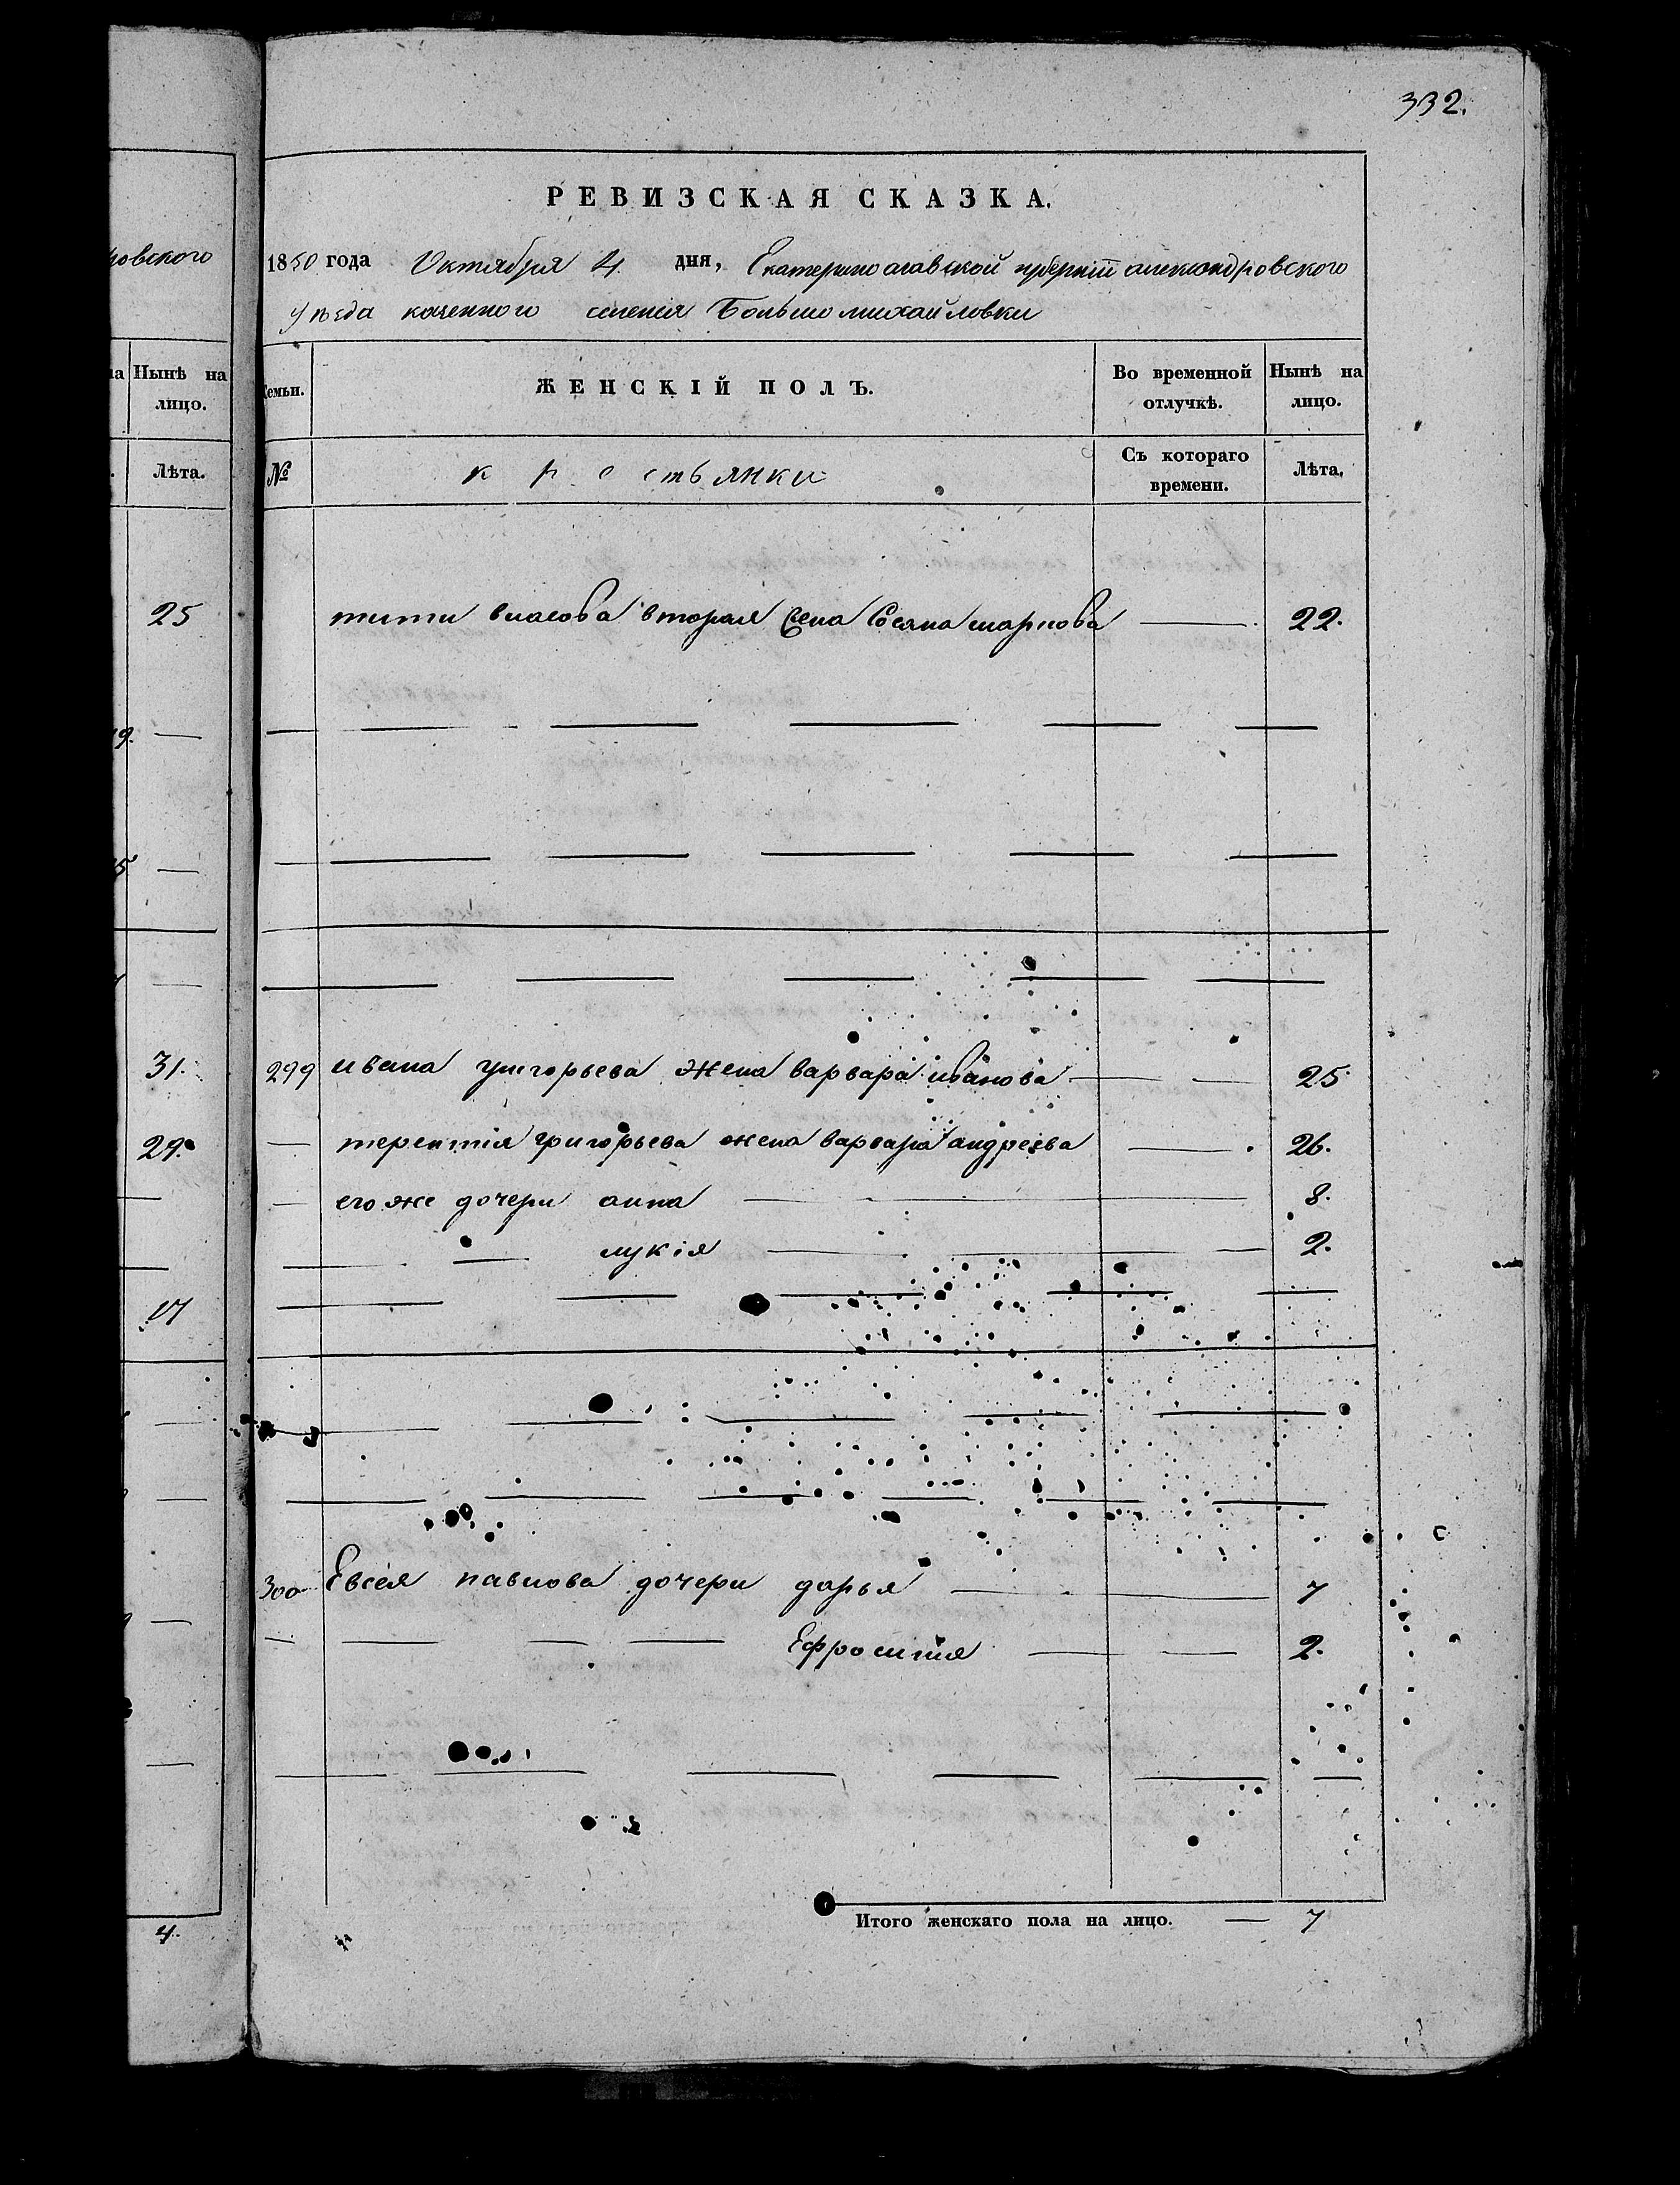 332.
РЕВИЗСКАЯ СКАЗКА.
ровского
1850 года Октября 4 дня, Екатеринославской губернiи александровского
уѣзда казенного селенiя Большомихайловки
на Нынѣ на лицо.
Семьи.
ЖЕНСКIЙ ПОЛЪ.
Во временной отлучкѣ.
Нынѣ на лицо.
Лѣта.
№
крестьянки
Съ котораго времени.
Лѣта.
25
власова вторая жена маркова — 22.
9. —
5 —
31.
299 ивана григорьева жена варвара иванова — — 25
29.
— терентiя григорьева жена варвара андреева — 26.
— его же дочери анна — 8.
— — лукiя — — 2.
17
300 Евсея павлова дочери дарья — — 7
— — — — Ефросинiя — — 2.
4.
Итого женскаго пола на лицо. — 7